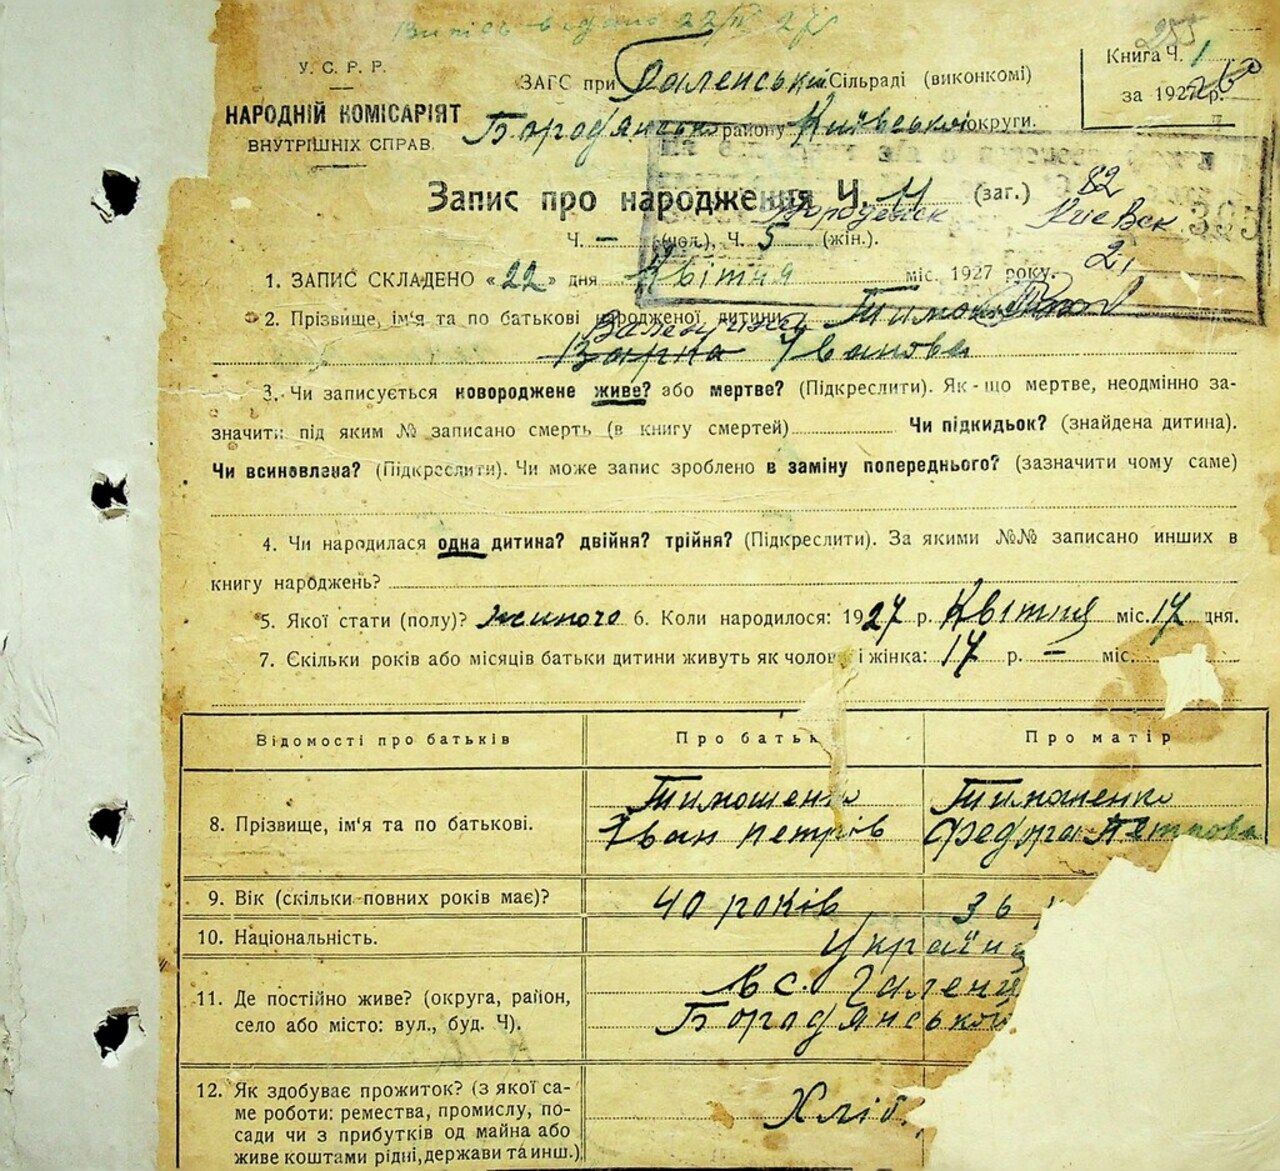 Випись видано 22/IV 27р
255
У. С. Р. Р.
НАРОДНІЙ КОМІСАРІЯТ
ВНУТРІШНІХ СПРАВ.
ЗАГС при Галенській Сільраді (виконкомі)
Бородянсько району Київської округи.
Книга Ч. 1
за 1927 р.
260
Запис про народження Ч. 11 (заг.)
82
Ч. — (чол.), Ч. 5 (жін.).
Киевск
305
2,
1. ЗАПИС СКЛАДЕНО «22» дня Квітня міс. 1927 року.
2. Прізвище, ім'я та по батькові народженої дитини
Валентина
Варка Іванова
3. Чи записується новороджене живе? або мертве? (Підкреслити). Як-що мертве, неодмінно за-
значити під яким № записано смерть (в книгу смертей) Чи підкидьок? (знайдена дитина).
Чи всиновлена? (Підкреслити). Чи може запис зроблено в заміну попереднього? (зазначити чому саме)
4. Чи народилася одна дитина? двійня? трійня? (Підкреслити). За якими №№ записано инших в
книгу народжень?
5. Якої стати (полу)? жиноче 6. Коли народилося: 1927 р. Квітня міс. 17 дня.
7. Скільки років або місяців батьки дитини живуть як чолов і жінка: 17 р. — міс.
Відомості про батьків Про батьк Про матір
Тимошенко Тимошенко
8. Прізвище, ім'я та по батькові.
Іван Петрів Федора Петрова
9. Вік (скільки повних років має)? 40 років 36
10. Національність. Україн
11. Де постійно живе? (округа, район, в с. Галени
село або місто: вул., буд. Ч). Бородянської
12. Як здобуває прожиток? (з якої са-
ме роботи: ремества, промислу, по- Хліб
сади чи з прибутків од майна або
живе коштами рідні, держави та инш.)